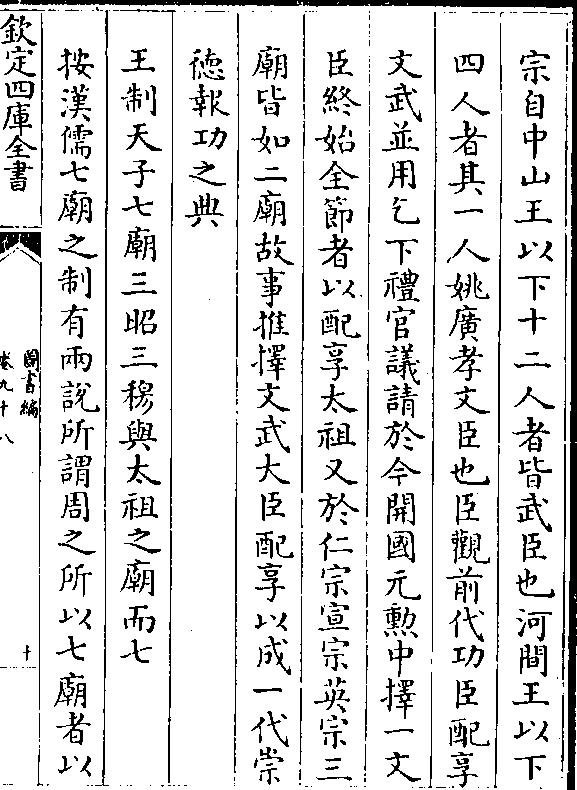 宗自中山王以下十二人者皆武臣也河間王以下
四人者其一人姚廣孝文臣也臣觀前代功臣配享
文武並用乞下禮官議請於今開國元勲中擇一文
臣終始全節者以配享太祖又於仁宗宣宗英宗三
廟皆如二廟故事推擇文武大臣配享以成一代崇
徳報功之典
王制天子七廟三昭三穆與太祖之廟而七
按漢儒七廟之制有兩說所謂周之所以七廟者以
欽定四庫全書
圖書編
卷九十八
十